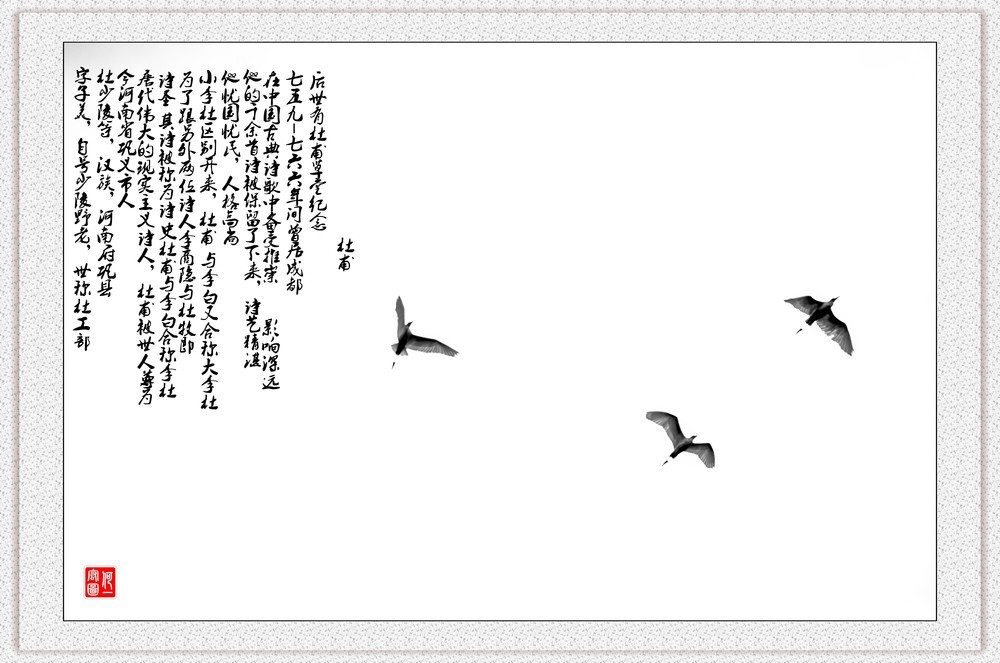 字子美，自号少陵野老，世称杜工部
杜少陵等，汉族，河南府巩县
今河南省巩义市人
唐代伟大的现实主义诗人，杜甫被世人尊为
诗圣 其诗被称为诗史杜甫与李白合称李杜
为了跟另外两位诗人李商隐与杜牧即
小李杜区别开来，杜甫 与李白又合称大李杜
他忧国忧民，人格高尚
他的千余首诗被保留了下来，诗艺精湛
在中国古典诗歌中备受推崇 影响深远
七五九—七六六年间曾居成都
后世有杜甫草堂纪念
杜甫
何一